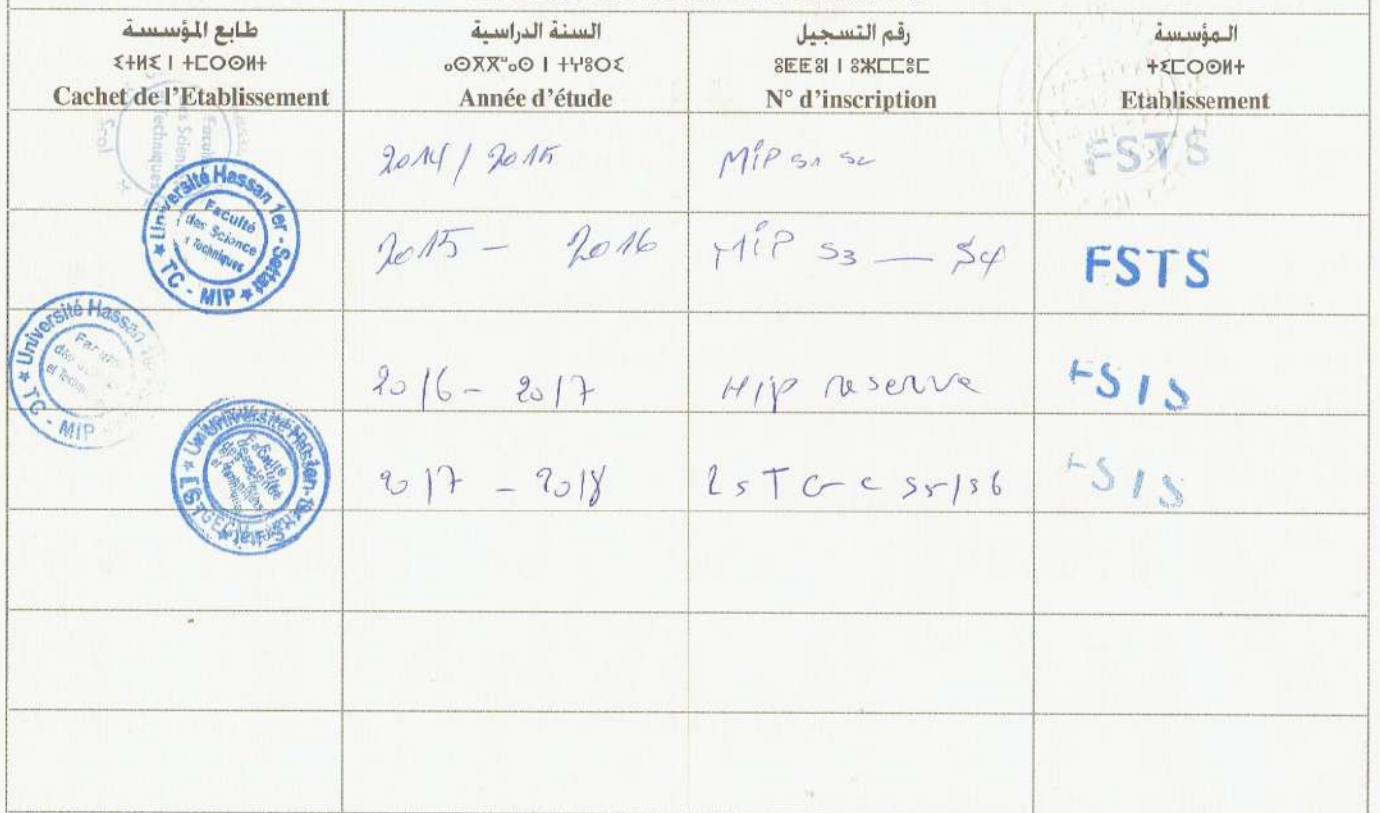 طابع المؤسسة
ⵉⵜⵍⵉ ⵏ ⵜⵎⵙⵙⵍⵜ
Cachet de l'Etablissement
السنة الدراسية
ⴰⵙⴳⴳⵯⴰⵙ ⵏ ⵜⵖⵓⵔⵉ
Année d'étude
رقم التسجيل
ⵓⵟⵟⵓⵏ ⵏ ⵓⵣⵎⵎⵓⵎ
N° d'inscription
المؤسسة
ⵜⵉⵎⵙⵙⵍⵜ
Etablissement
Faculté
des Sciences
Techniques
2014 / 2015
MIP S1 S2
FSTS
Université Hassan 1er - Settat
Faculté
des Science
Techniques
TC - MIP
2015 - 2016
MIP S3 — S4
FSTS
Université Hassan 1er
et Techn
TC - MIP
2016 - 2017
MIP reserve
FSTS
Université Hassan 1er
Settat
2017 - 2018
LST GC S5/S6
FSTS